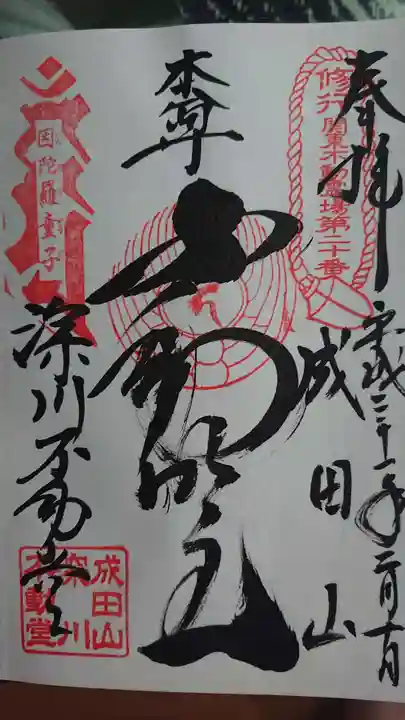 奉拝
平成三十一年二月十一日
修行 関東不動霊場第二十番
成田山
本尊
不動明王
因陀羅童子
深川不動堂
成田山
深川
不動堂